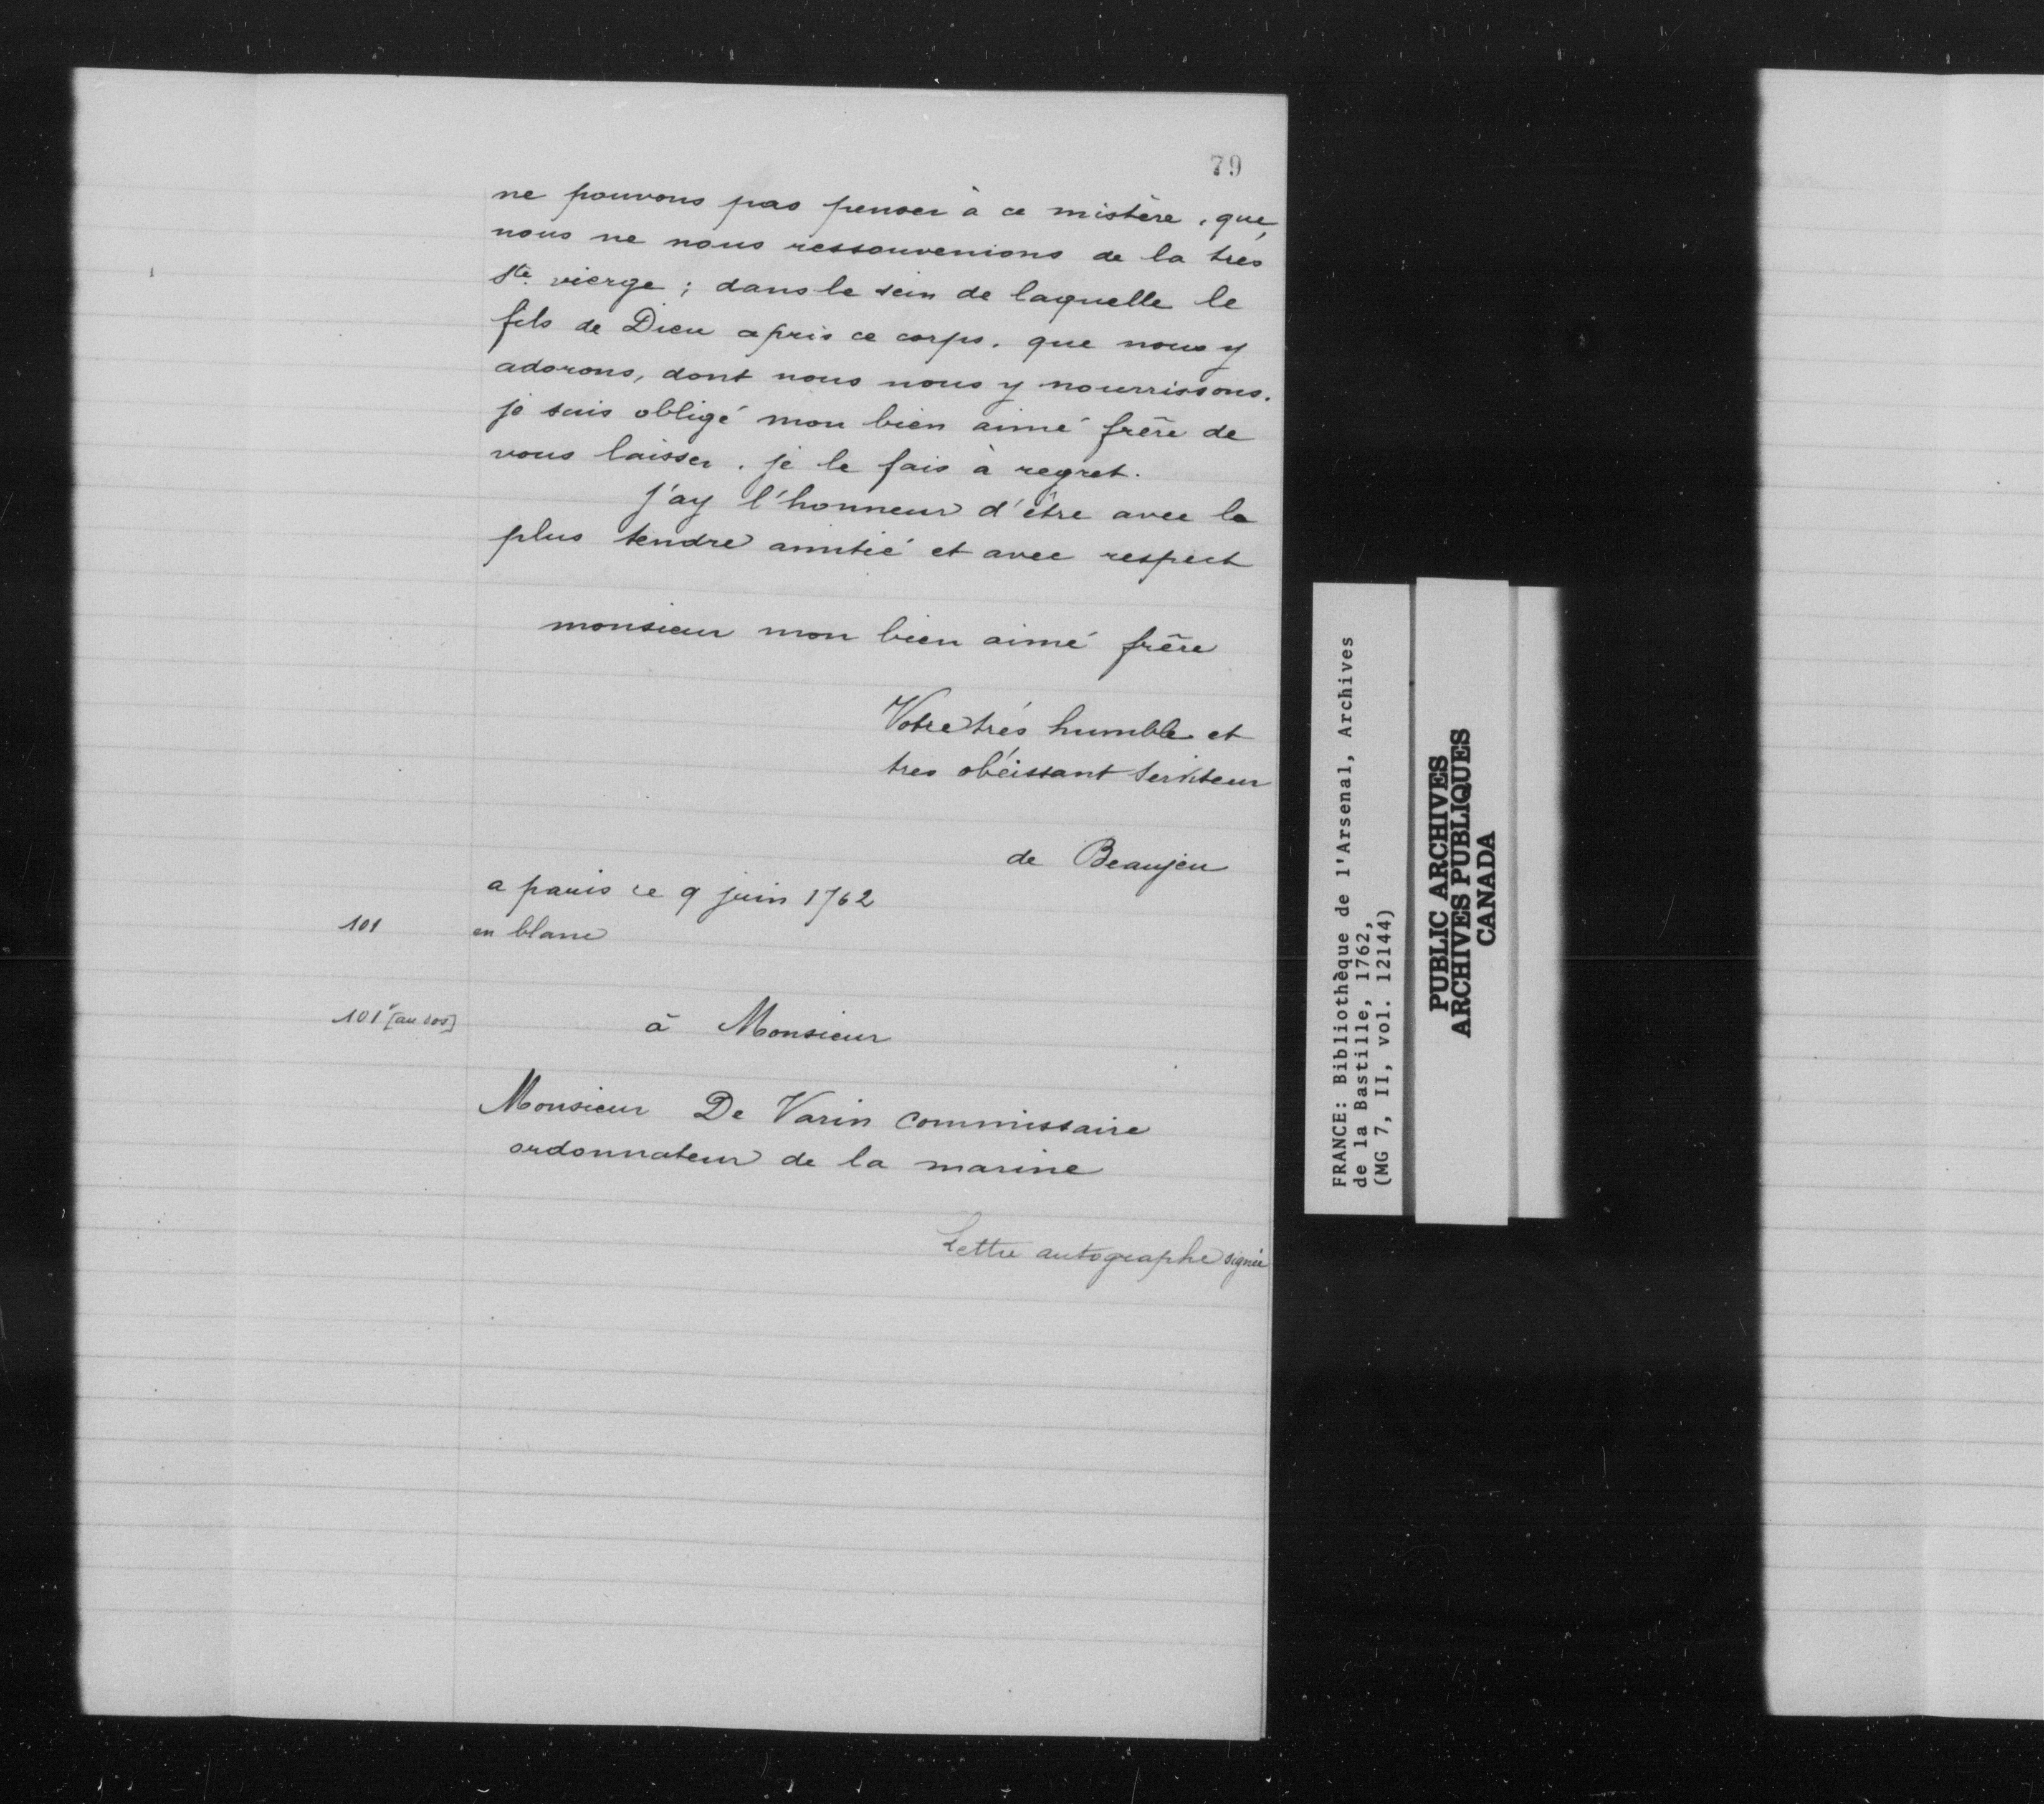 79
ne pouvons pas penser à ce mistère, que,
nous ne nous ressouvenions de la tres
Ste. vierge ; dans le sein de laquelle le
fils de Dieu apris ce corps. que nous y
adorons, dont nous nous y nourrissons.
je suis obligé mon bien aimé frère de
vous laisser. je le fais à regret.
j'ay l'honneur d'être avec la
plus tendre amitié et avec respect
monsieur mon bien aimé frère
Votre très humble et
tres obéissant serviteur
de Beaujeu
a paris ce 9 juin 1762
101 en blanc
101v [au dos] à Monsieur
Monsieur De Varin commissaire
ordonnateur de la marine
Lettre autographe signée
FRANCE: Bibliothèque de l'Arsenal, Archives
de la Bastille, 1762,
(MG 7, II, vol. 12144)
PUBLIC ARCHIVES
ARCHIVES PUBLIQUES
CANADA